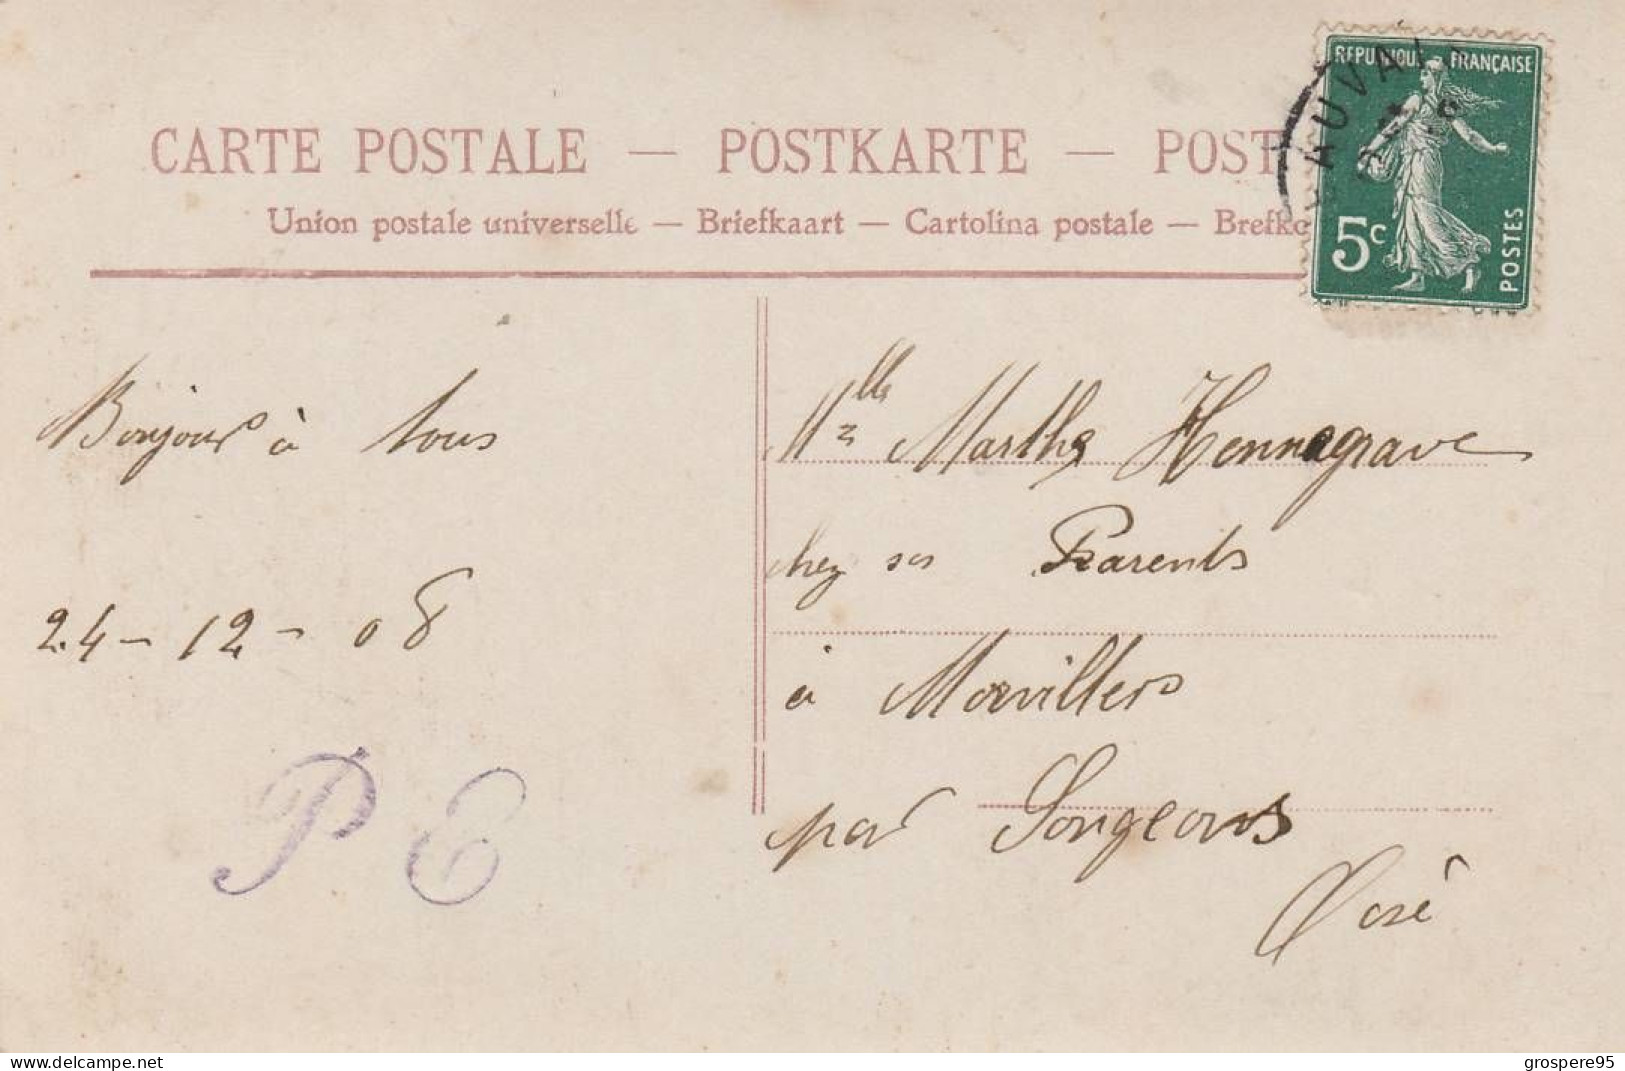 CARTE POSTALE — POSTKARTE — POST
Union postale universelle — Briefkaart — Cartolina postale — Brefko
REPUBLIQUE FRANÇAISE
5c
POSTES
AUVA
Bonjour à tous
24-12-08
P E
Mlle Marthe Hennegrave
chez ses Parents
à Morvillers
par Songeons
Oise
www.delcampe.net
grospere95